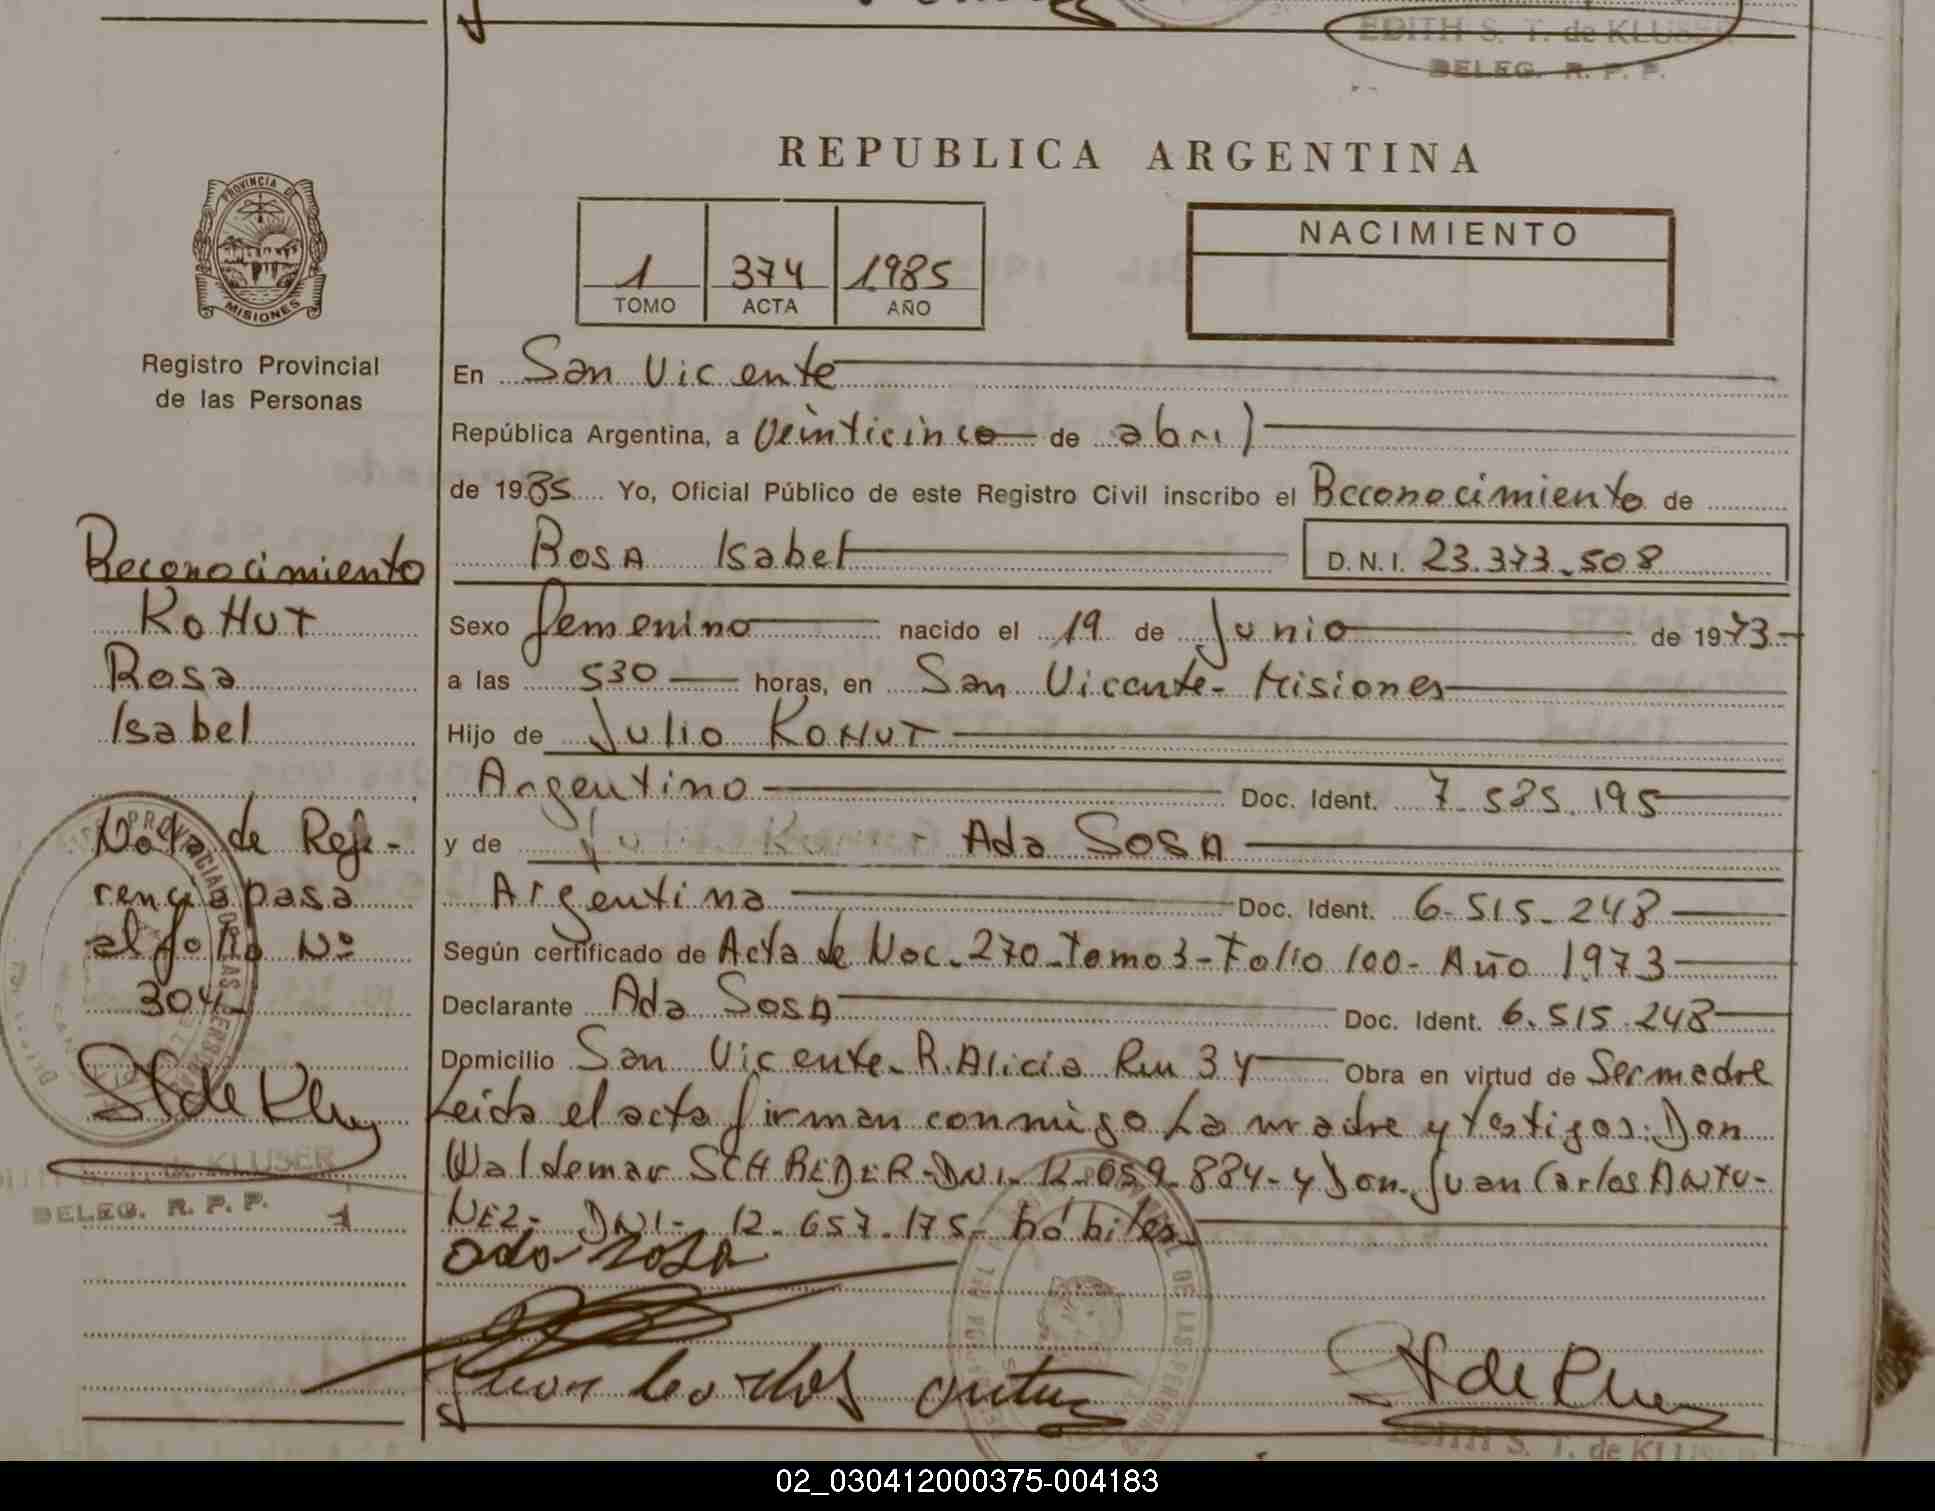 EDITH S. T. de KLUSER
DELEG. R. P. P.
REPUBLICA ARGENTINA
PROVINCIA DE
MISIONES
Registro Provincial
de las Personas
1 374 1985
TOMO ACTA AÑO
NACIMIENTO
En San Vicente
República Argentina, a Veinticinco de abril
de 1985 Yo, Oficial Público de este Registro Civil inscribo el Reconocimiento de
Rosa Isabel D.N.I. 23.373.508
Sexo femenino nacido el 19 de Junio de 1973
a las 530 horas, en San Vicente - Misiones
Hijo de Julio KOHUT
Argentino Doc. Ident. 7.585.195
y de Ada SOSA
Argentina Doc. Ident. 6.515.248
Según certificado de Acta de Nac. 270 - Tomo 3 - Folio 100 - Año 1973
Declarante Ada SOSA Doc. Ident. 6.515.248
Domicilio San Vicente - R. Alicia Obra en virtud de Ser madre
Leida el acta firman conmigo La madre y testigos: Don
Waldemar SCHREDER - DNI - 12.059.884 - y Don Juan Carlos ANTU-
NEZ - DNI - 12.657.175 - hábiles
Reconocimiento
KOHUT
Rosa
Isabel
Nota de Refe-
rencia pasa
al folio Nº
304
de KLUSER
DELEG. R. P. P.
ada sosa
Juan Carlos
EDITH S. T. de KLUSER
02_030412000375-004183